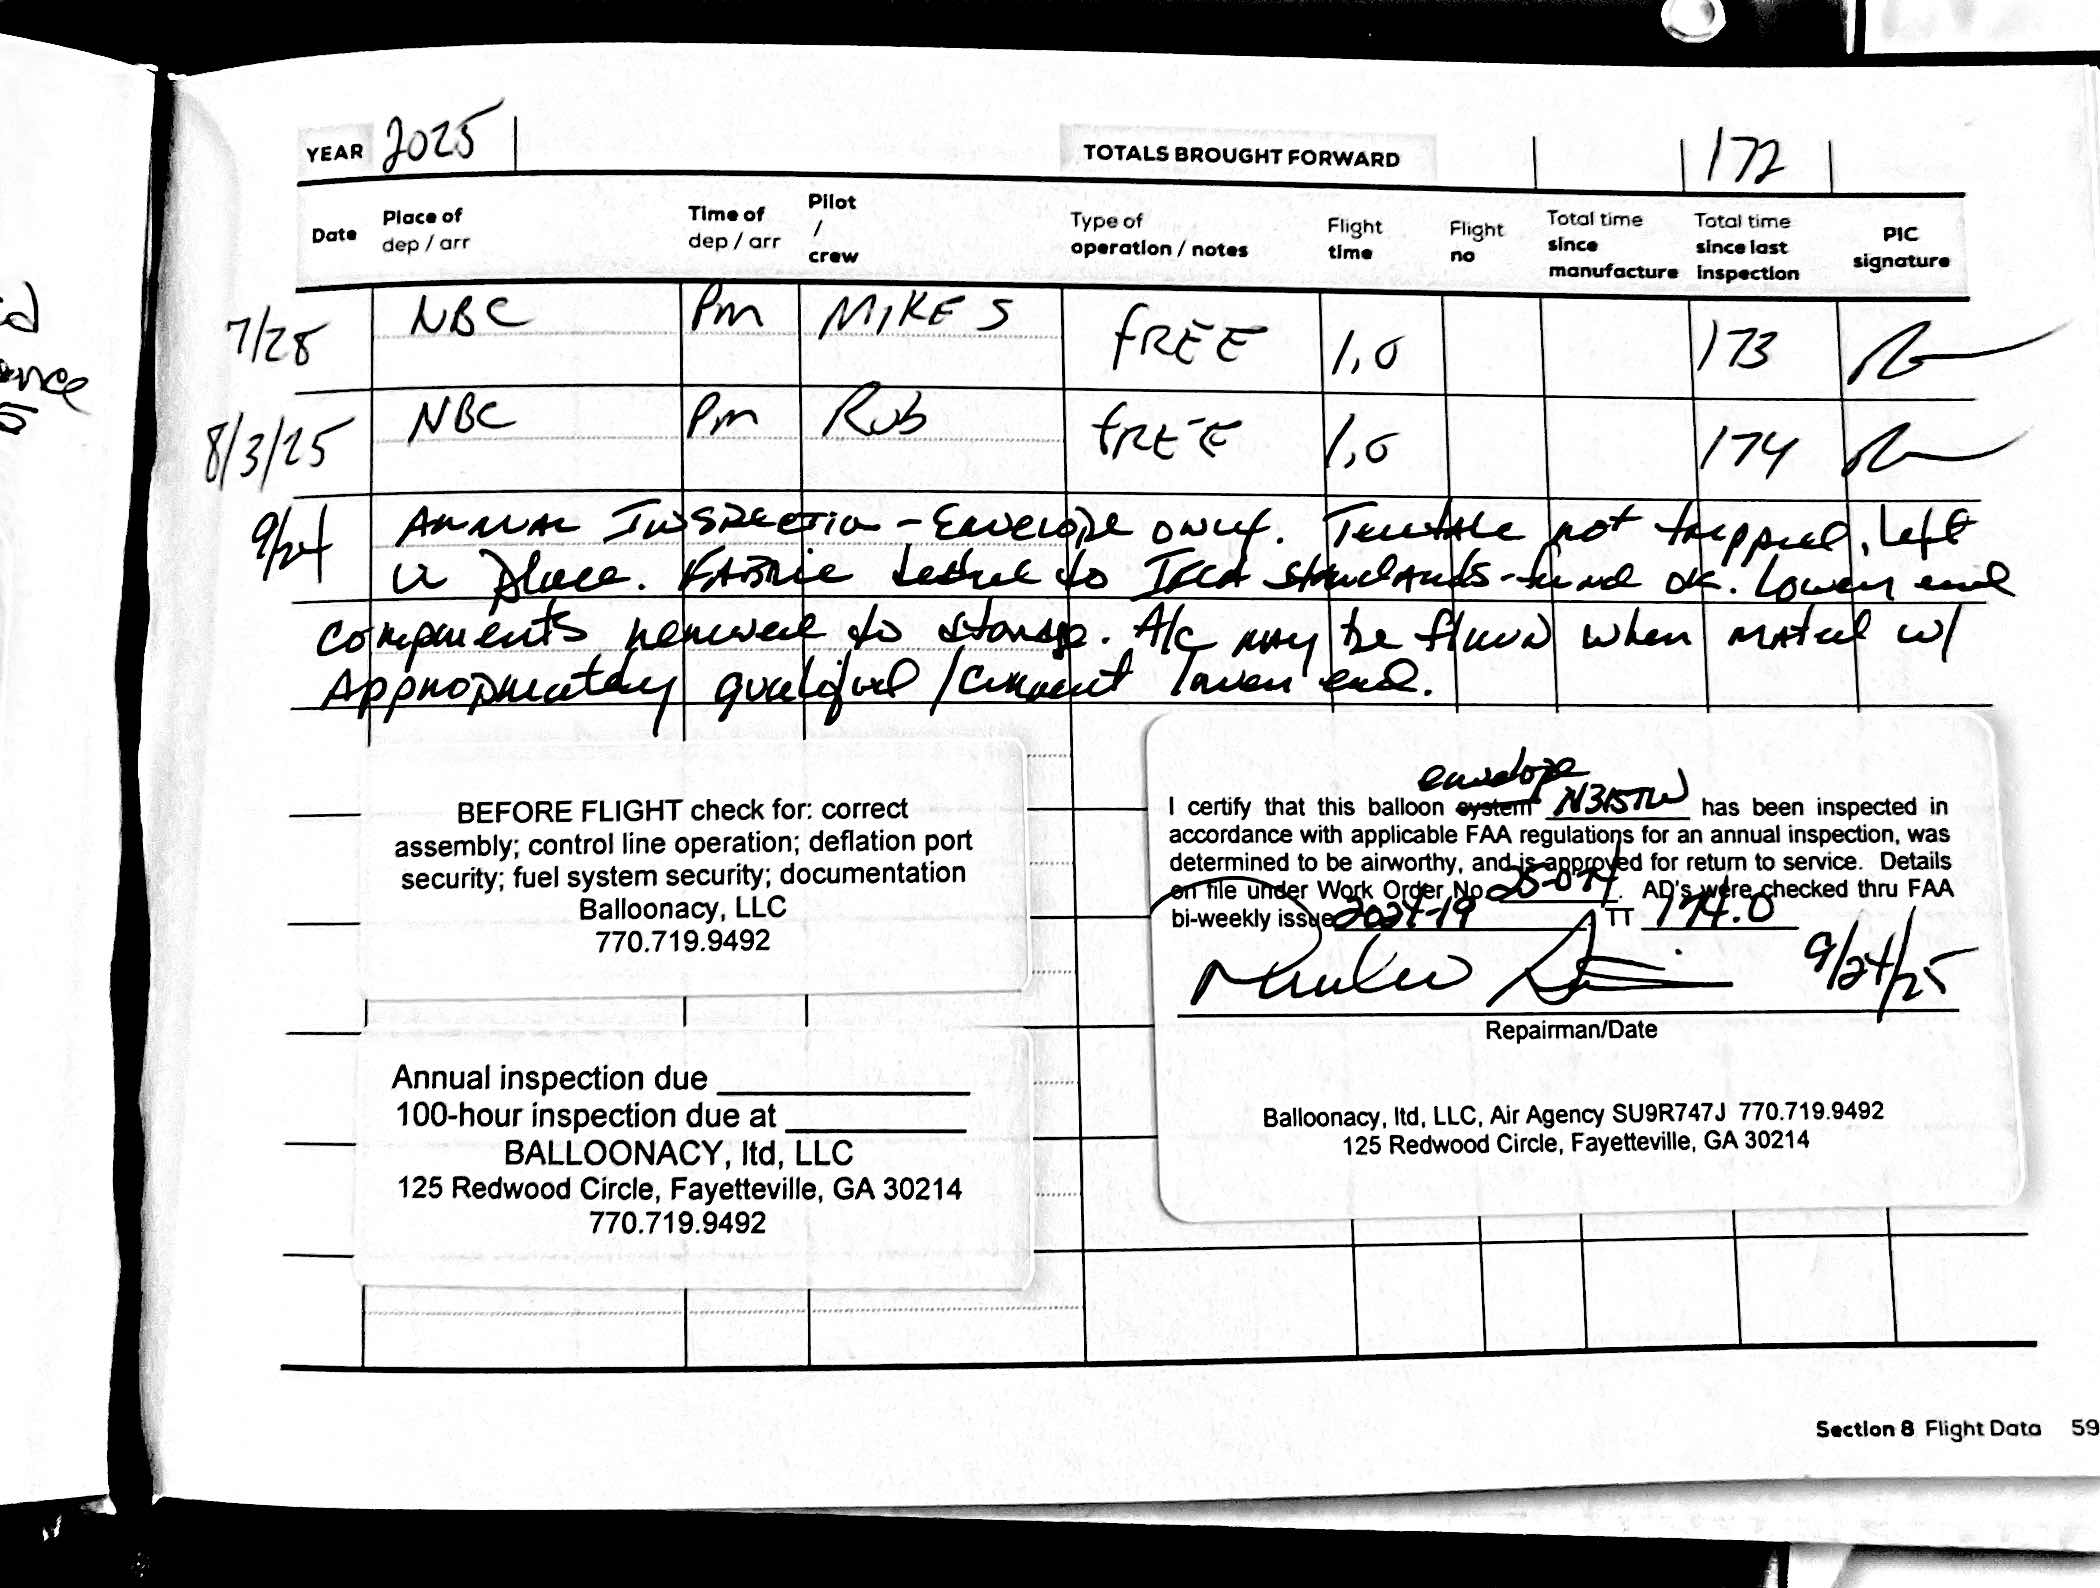 YEAR 2025 TOTALS BROUGHT FORWARD 172
Date Place of dep / arr Time of dep / arr Pilot / crew Type of operation / notes Flight time Flight no Total time since manufacture Total time since last inspection PIC signature
7/28 NBC Pm MIKE S FREE 1,0 173
8/3/25 NBC Pm Rob FREE 1,0 174
9/24 Annual Inspection - Envelope only. Telltale not tripped, left
in place. Fabric tested to standards - found ok. Lower end
components removed to storage. A/c may be flown when mated w/
Appropriately qualified / current lower end.
BEFORE FLIGHT check for: correct
assembly; control line operation; deflation port
security; fuel system security; documentation
Balloonacy, LLC
770.719.9492
Annual inspection due
100-hour inspection due at
BALLOONACY, ltd, LLC
125 Redwood Circle, Fayetteville, GA 30214
770.719.9492
envelope
I certify that this balloon system N315TW has been inspected in
accordance with applicable FAA regulations for an annual inspection, was
determined to be airworthy, and is approved for return to service. Details
on file under Work Order No. AD's were checked thru FAA
bi-weekly issue TT 174.0
9/24/25
Repairman/Date
Balloonacy, ltd, LLC, Air Agency SU9R747J 770.719.9492
125 Redwood Circle, Fayetteville, GA 30214
Section 8 Flight Data 59